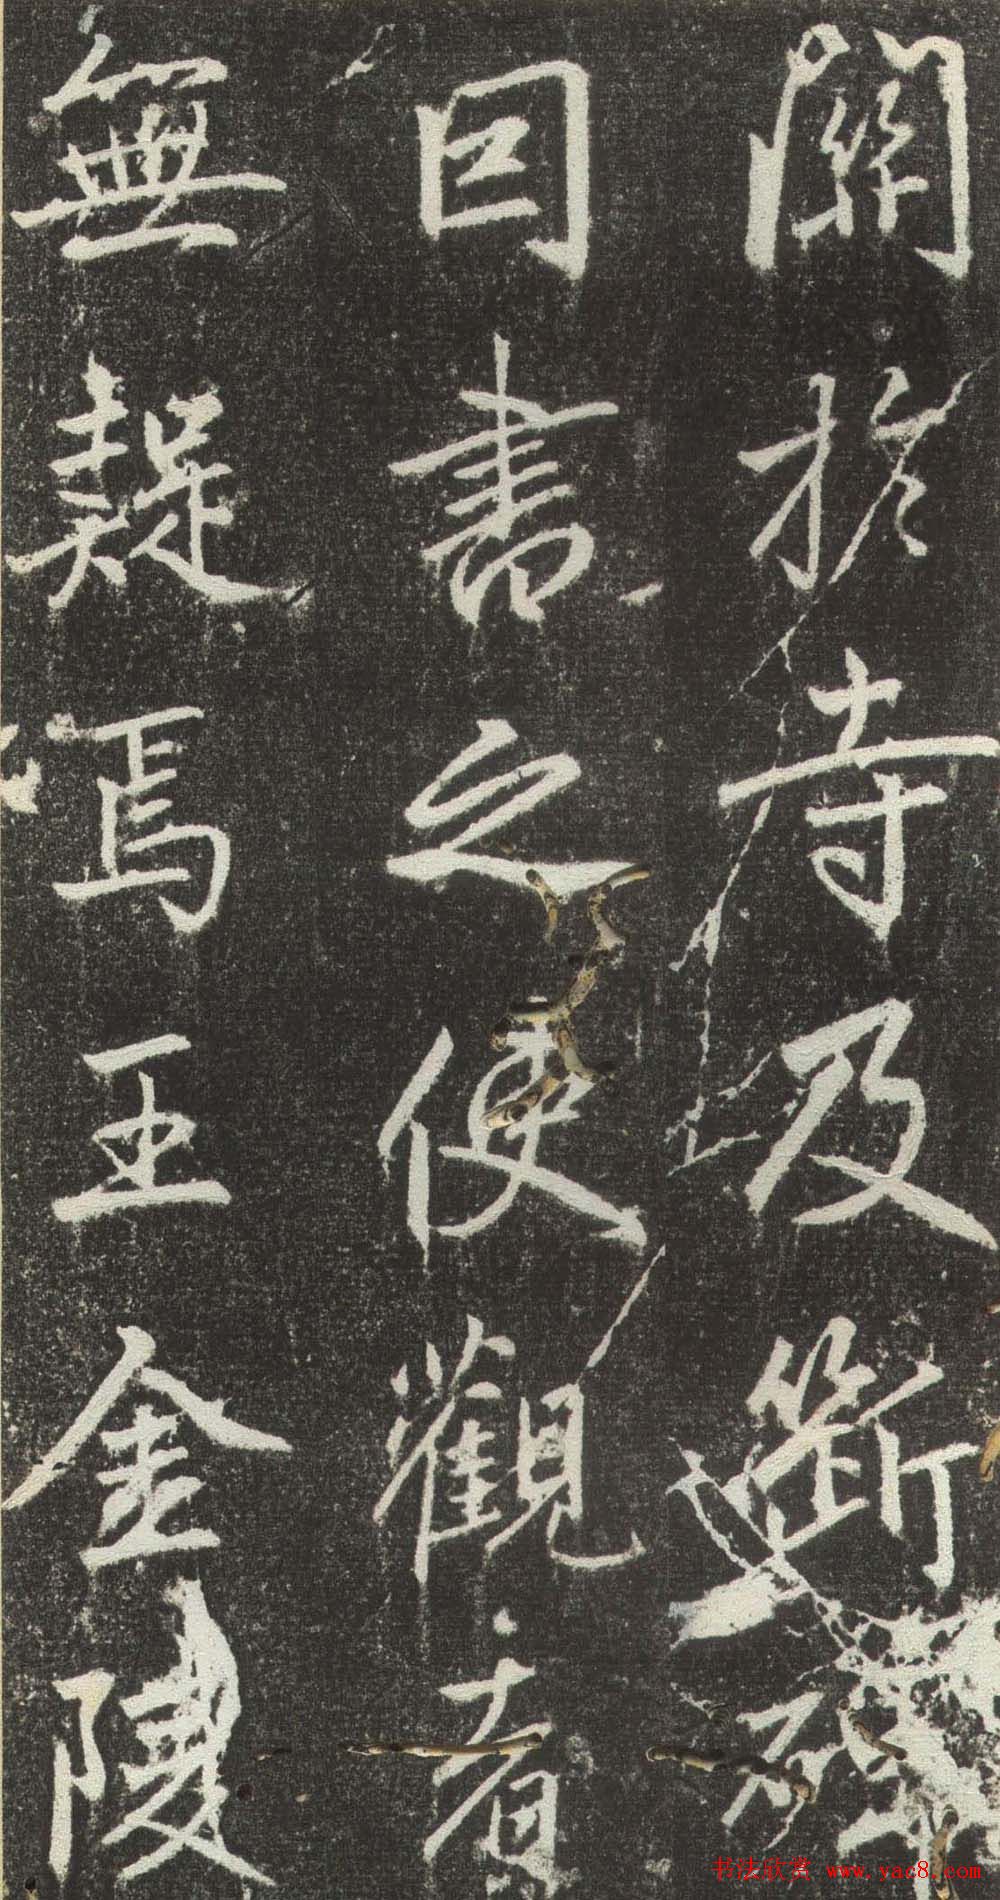 關於寺及斷
因書之使觀者
無疑焉王金陵
书法欣赏 www.yac8.com